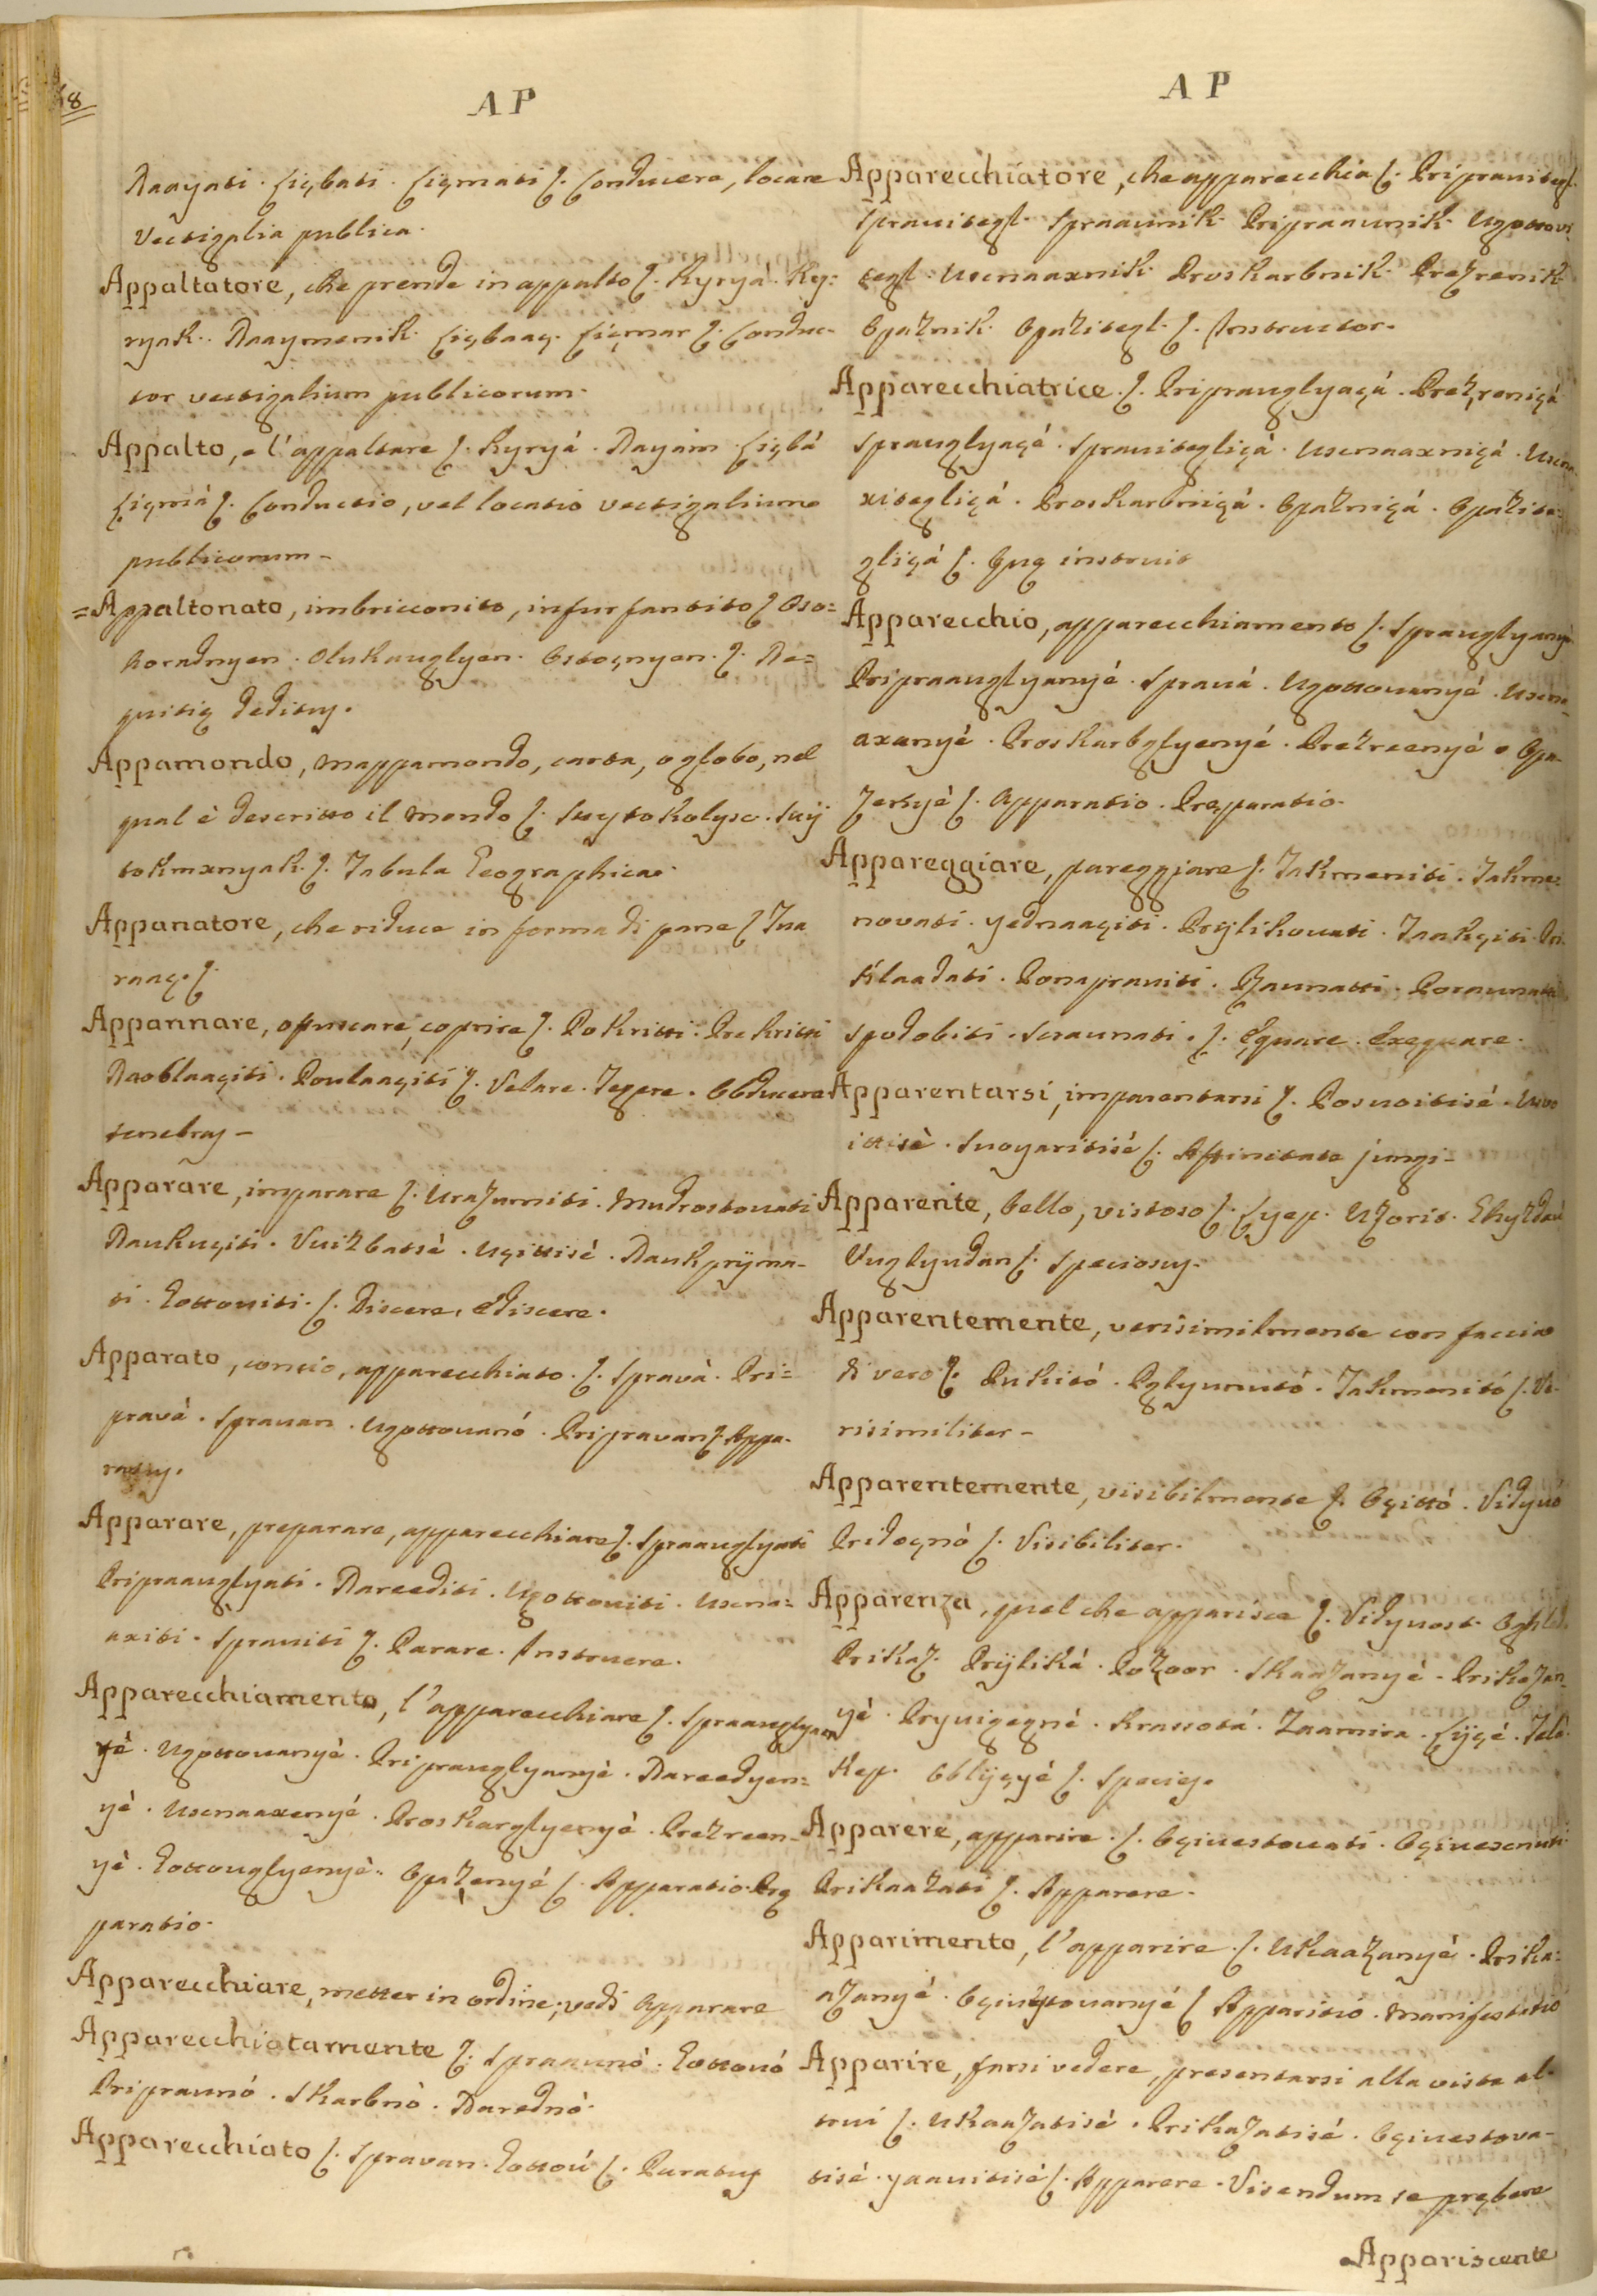 AP
Naayati. Ciçbati. Ciçmati ſ. Conducere, locare
Vectigalia publica.
Appaltatore, che prende in appalto ſ. Kyryá. Ky=
ryak. Naaymenik. Ciçbaaç. Ciçmar ſ. Conduc-
tor vectigalium publicorum.
Appalto, e l'appaltare ſ. Kyryá. Nayám. Ciçbá
Ciçmá ſ. Conductio, vel locatio vectigalium
publicorum-
=Appaltonato, imbricconito, infurfantito ſ. Oso=
horadnyen. Olukauglyen. Ostoçnyen. ſ. Ne=
quitię deditus.
Appamondo, mappamondo, carta, o globo, nel
qual è descritto il mondo ſ. Suytokolyso. Suÿ
tokruxnyak. ſ. Tabula Geographica.
Appanatore, che riduce in forma di pane ſ.
raaç. ſ.
Appannare, offuscare, coprire ſ. Pokritti. Prekritti
Naoblaaçiti. Poulaaçiti ſ. Velare. Tegere. Obducere
tenebras-
Apparare, imparare ſ. Urazumiti. Mudrostouati
Naukuçiti. Vuizbatsè. Uçittisè. Naukprÿma-
ti. Gottouiti. ſ. Discere, ediscere.
Apparato, concio, apparecchiato. ſ. Spravà. Pri=
pravà. Sprauan. Ugottouanó. Pripravan ſ. Appa-
ratus.
Apparare, preparare, apparecchiare ſ. Spraauglyati
Pripraauglyati. Nareediti. Ugottouiti. Uscna=
axiti. Sprauiti ſ. Parare. Instruere.
Apparecchiamento, l'apparecchiare ſ. Spraauglyan
yè. Ugottouanyè. Priprauglyanyè. Nareedyen=
yè. Uscnaaxenyé. Proskarglyenyè. Prezreen-
yè. Gottouglyenyè. Opazenyé ſ. Apparatio. Prę
paratio.
Apparecchiare, metter in ordine; vedi Apparare
Apparecchiatamente ſ. Spraaunò. Gottouó
Pripraunó. Skarbnò. Narednò.
Apparecchiato ſ. Spravan. Gottoú ſ. Paratus
AP
Apparecchiatore, che apparecchia ſ. Pripravitegl.
Sprauitegl. Spraaunik. Pripraaunik. Ugottoui
tegl. Uscnaaxnik. Proskarbnik. Prezrenik
Opaznik. Opazitegl. ſ. Instructor.
Apparecchiatrice. ſ. Priprauglyaçá. Prezreniçá
Sprauglyaçá. Sprauitegliçá. Uscnaaxniçá. Uscna
xitegliçá. Proskarbniçá. Opazniçá. Opazite=
gliçá ſ. Quę instruit
Apparecchio, apparecchiamento ſ. Sprauglyanyé
Pripraauglyanyé. Spravá. Ugottouanyé. Uscna
axanyé. Proskarbglyenyé. Prezreenyé. Opa-
zenyé ſ. Apparatio. Pręparatio.
Appareggiare, pareggiare ſ. Takmeniti. Takme=
novati. Yednaaçiti. Prÿlikouati. Jaakçiti. Pri
klaadati. Ponaprauiti. Raunatti. Poraunati
Spodobiti. Sraunati. ſ. Equare. Exequare.
Apparentarsi, imparentarsi ſ. Posuoitisé. Usuo
ittisè. Suoyaritisé ſ. Affinitate jungi-
Apparente, bello, vistoso ſ. Lyep. Uzorit. Ghyzdau
Vuglyudan ſ. Speciosus.
Apparentemente, verisimilmente con faccia
di vero ſ. Pukitó. Takmenitó ſ. Ve-
risimiliter-
Apparentemente, visibilmente ſ. Oçittó. Vidyuó
Pridoçnó ſ. Visibiliter.
Apparenza, quel che apparisce ſ. Vidyuost. Oghled.
Prikaz. Prÿliká. Pozoor. Skaazanyé. Prikazan-
yè. Krassotá. Zaamira. Lÿçé.
Obliçyé ſ. Species.
Apparere, apparire. ſ. Oçiuestouati. Oçiuescnuti
Prikaazati ſ. Apparere.
Apparimento, l'apparire. ſ. Ukaazanyé. Prika=
azanyé. Oçiuestouanyé ſ. Apparitió. Manifestatió
Apparire, farsi vedere, presentarsi alla vista al-
trui ſ. Ukaazatisé. Prikazatisé. Oçiuestova-
tisé. yaauitisé ſ. Apparere. Visendum se prębere
Appariscente